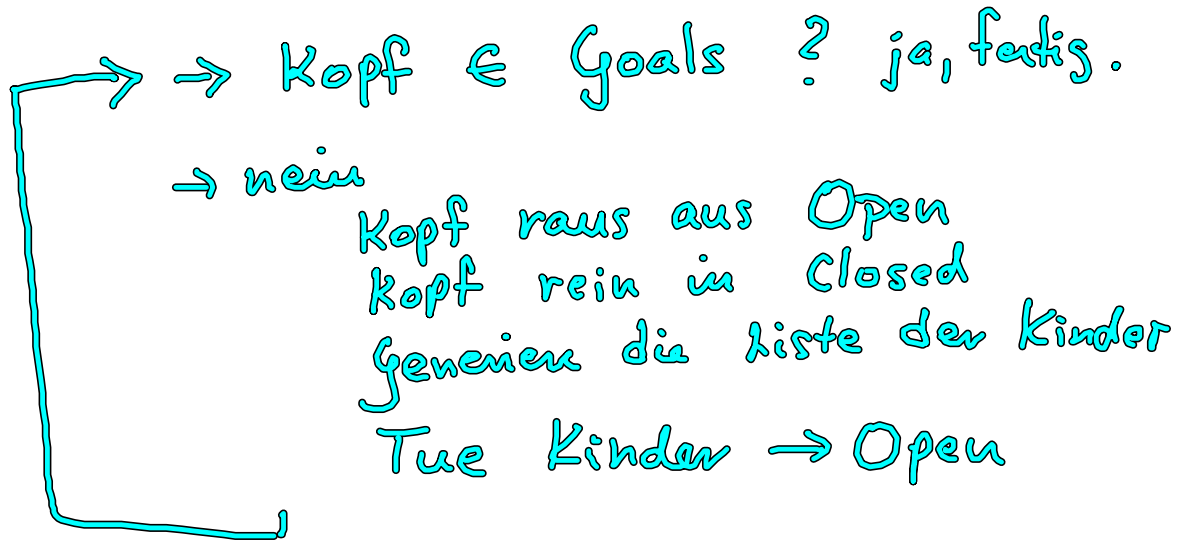 → Kopf ∈ Goals ? ja, fertig.
→ nein
Kopf raus aus Open
Kopf rein in Closed
Generiere die Liste der Kinder
Tue Kinder → Open